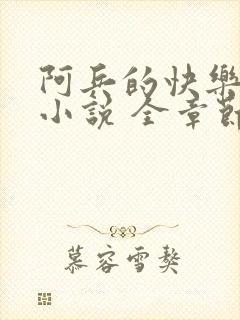 阿兵的快樂
小說 全章節
慕容雪獒